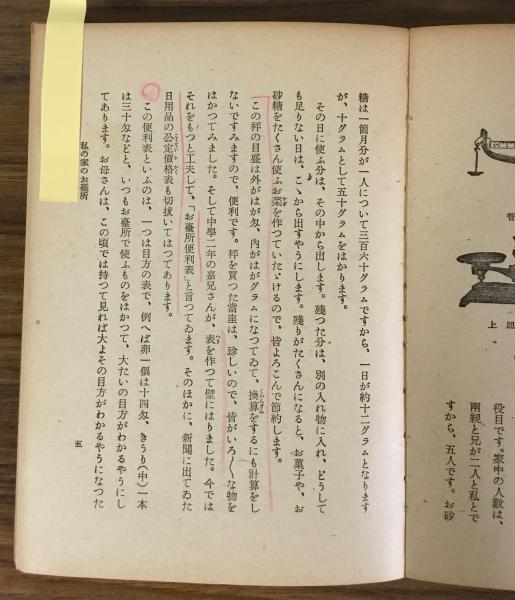 役目です。家中の人數は、
兩親と兄が一人と私とで
すから、五人です。お砂
上皿
糖は一箇月分が一人について三百六十グラムですから、一日が約十二グラムとなります
が、十グラムとして五十グラムをはかります。
その日に使ふ分は、その中から出します。殘つた分は、別の入れ物に入れ、どうして
も足りない日は、こゝから出すやうにします。殘りがたくさんになると、お菓子や、お
砂糖をたくさん使ふお菜を作つていたゞけるので、皆よろこんで節約します。
この秤の目盛は外がはが匁、内がはがグラムになつてゐて、換算をするにも計算をし
ないですみますので、便利です。秤を買つた當座は、珍しいので、皆がいろ〳〵な物を
はかつてみました。そして中學二年の嘉兄さんが、表を作つて壁にはりました。今では
それをもつと工夫して、「お臺所便利表」と言つてゐます。そのほかに、新聞に出てゐた
日用品の公定價格表も切拔いてはつてあります。
この便利表といふのは、一つは目方の表で、例へば卵一個は十四匁、きうり(中)一本
は三十匁などと、いつもお臺所で使ふものをはかつて、大たいの目方がわかるやうにし
てあります。お母さんは、この頃では持つて見れば大よその目方がわかるやうになつた
私の家のお臺所
五